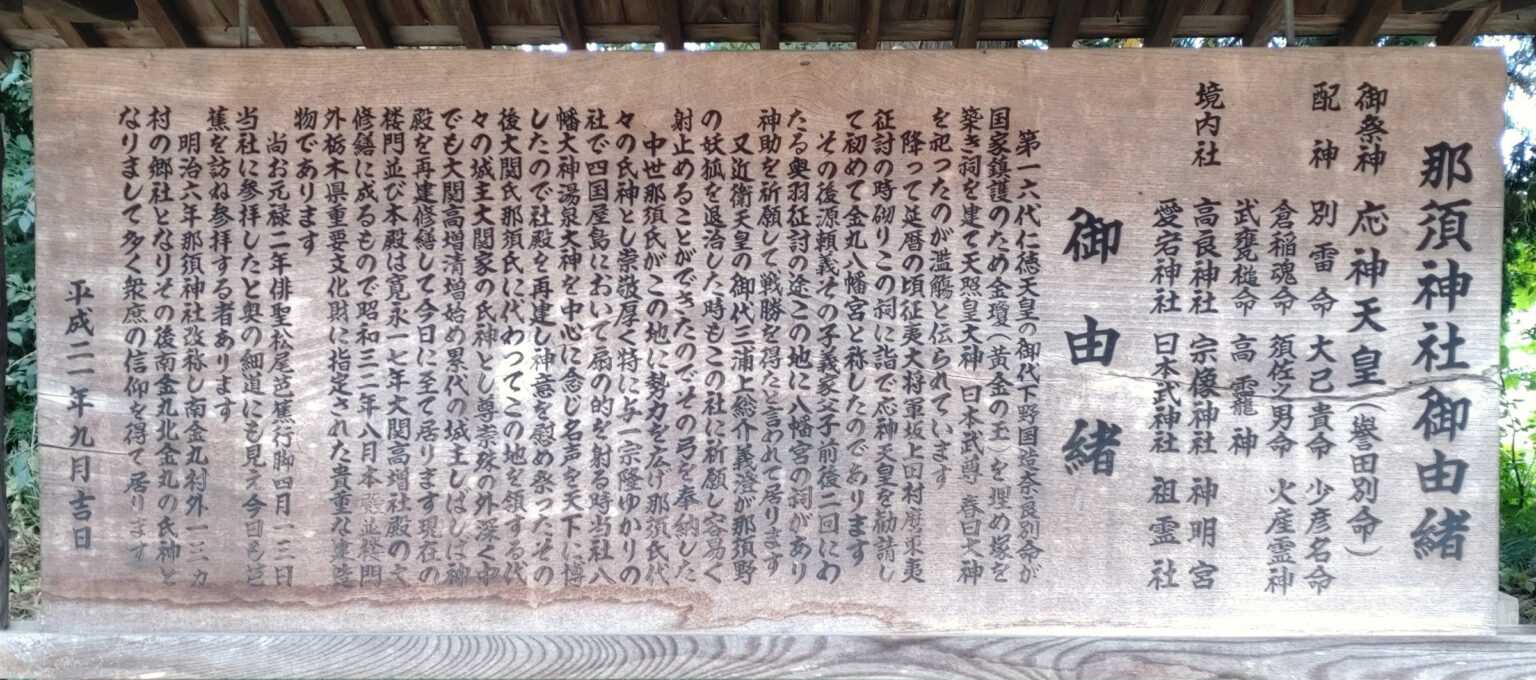 那須神社御由緒
御祭神 応神天皇(誉田別命)
配神 別雷命 大己貴命 少彦名命
倉稲魂命 須佐之男命 火産霊神
武甕槌命 高龗神
境内社 高良神社 宗像神社 神明宮
愛宕神社 日本武神社 祖霊社
御由緒
第一六代仁徳天皇の御代下野国造奈良別命が
国家鎮護のため金瓊(黄金の玉)を埋め塚を
築き祠を建て天照皇大神日本武尊春日大神
を祀ったのが濫觴と伝られています
降って延暦の頃征夷大将軍坂上田村麿東夷
征討の時砌りこの祠に詣で応神天皇を勧請し
て初めて金丸八幡宮と祢したのであります
その後源頼義その子義家父子前後二回にわ
たる奥羽征討の途この地に八幡宮の祠があり
神助を祈願して戦勝を得たと言われて居ります
又近衛天皇の御代三浦上総介義澄が那須野
の妖狐を退治した時もこの社に祈願し容易く
射止めることができたのでその弓を奉納した
中世那須氏がこの地に勢力を広げ那須氏代
々の氏神とし崇敬厚く特に与一宗隆ゆかりの
社で四国屋島において扇の的を射る時当社八
幡大神湯泉大神を中心に念じ名声を天下に博
したので社殿を再建し神意を慰め祭ったその
後大関氏那須氏に代わってこの地を領する代
々の城主大関家の氏神とし尊崇殊の外深く中
でも大関高増清増始め累代の城主しばしば神
殿を再建修繕して今日に至て居ります現在の
楼門並び本殿は寛永一七年大関高増社殿の大
修繕に成るもので昭和三二年八月本殿並楼門
外栃木県重要文化財に指定された貴重な建造
物であります
尚お元禄二年俳聖松尾芭蕉行脚四月一三日
当社に参拝したと奥の細道にも見え今日も芭
蕉を訪ね参拝する者あります
明治六年那須神社改祢し南金丸村外一三カ
村の郷社となりその後南金丸北金丸の氏神と
なりまして多く衆庶の信仰を得て居ります
平成二一年九月吉日